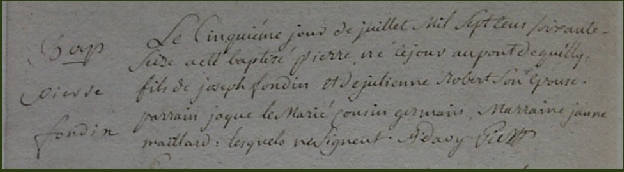 Bap
pierre
fondin
Le Cinquiéme jour de juillet Mil Sept Cens soixante-
Suze a eté baptisé pierre, né le jour au pont de quilly,
fils de joseph fondin et de julienne Robert Son Epouse.
parrain jaque le Marié Cousin germain, Marraine janne
maillard: lesquels ne Signent.